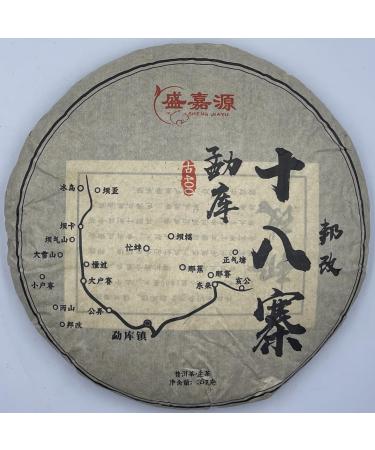 盛嘉源
SHENG JIAYU
勐库
古
十八寨
邦改
冰岛
坝歪
坝卡
坝气山
大雪山
懂过
小户赛
大户赛
丙山
邦改
公弄
勐库镇
忙蚌
坝糯
正气塘
那蕉
那赛
东来
亥公
普洱茶·生茶
净含量:357克